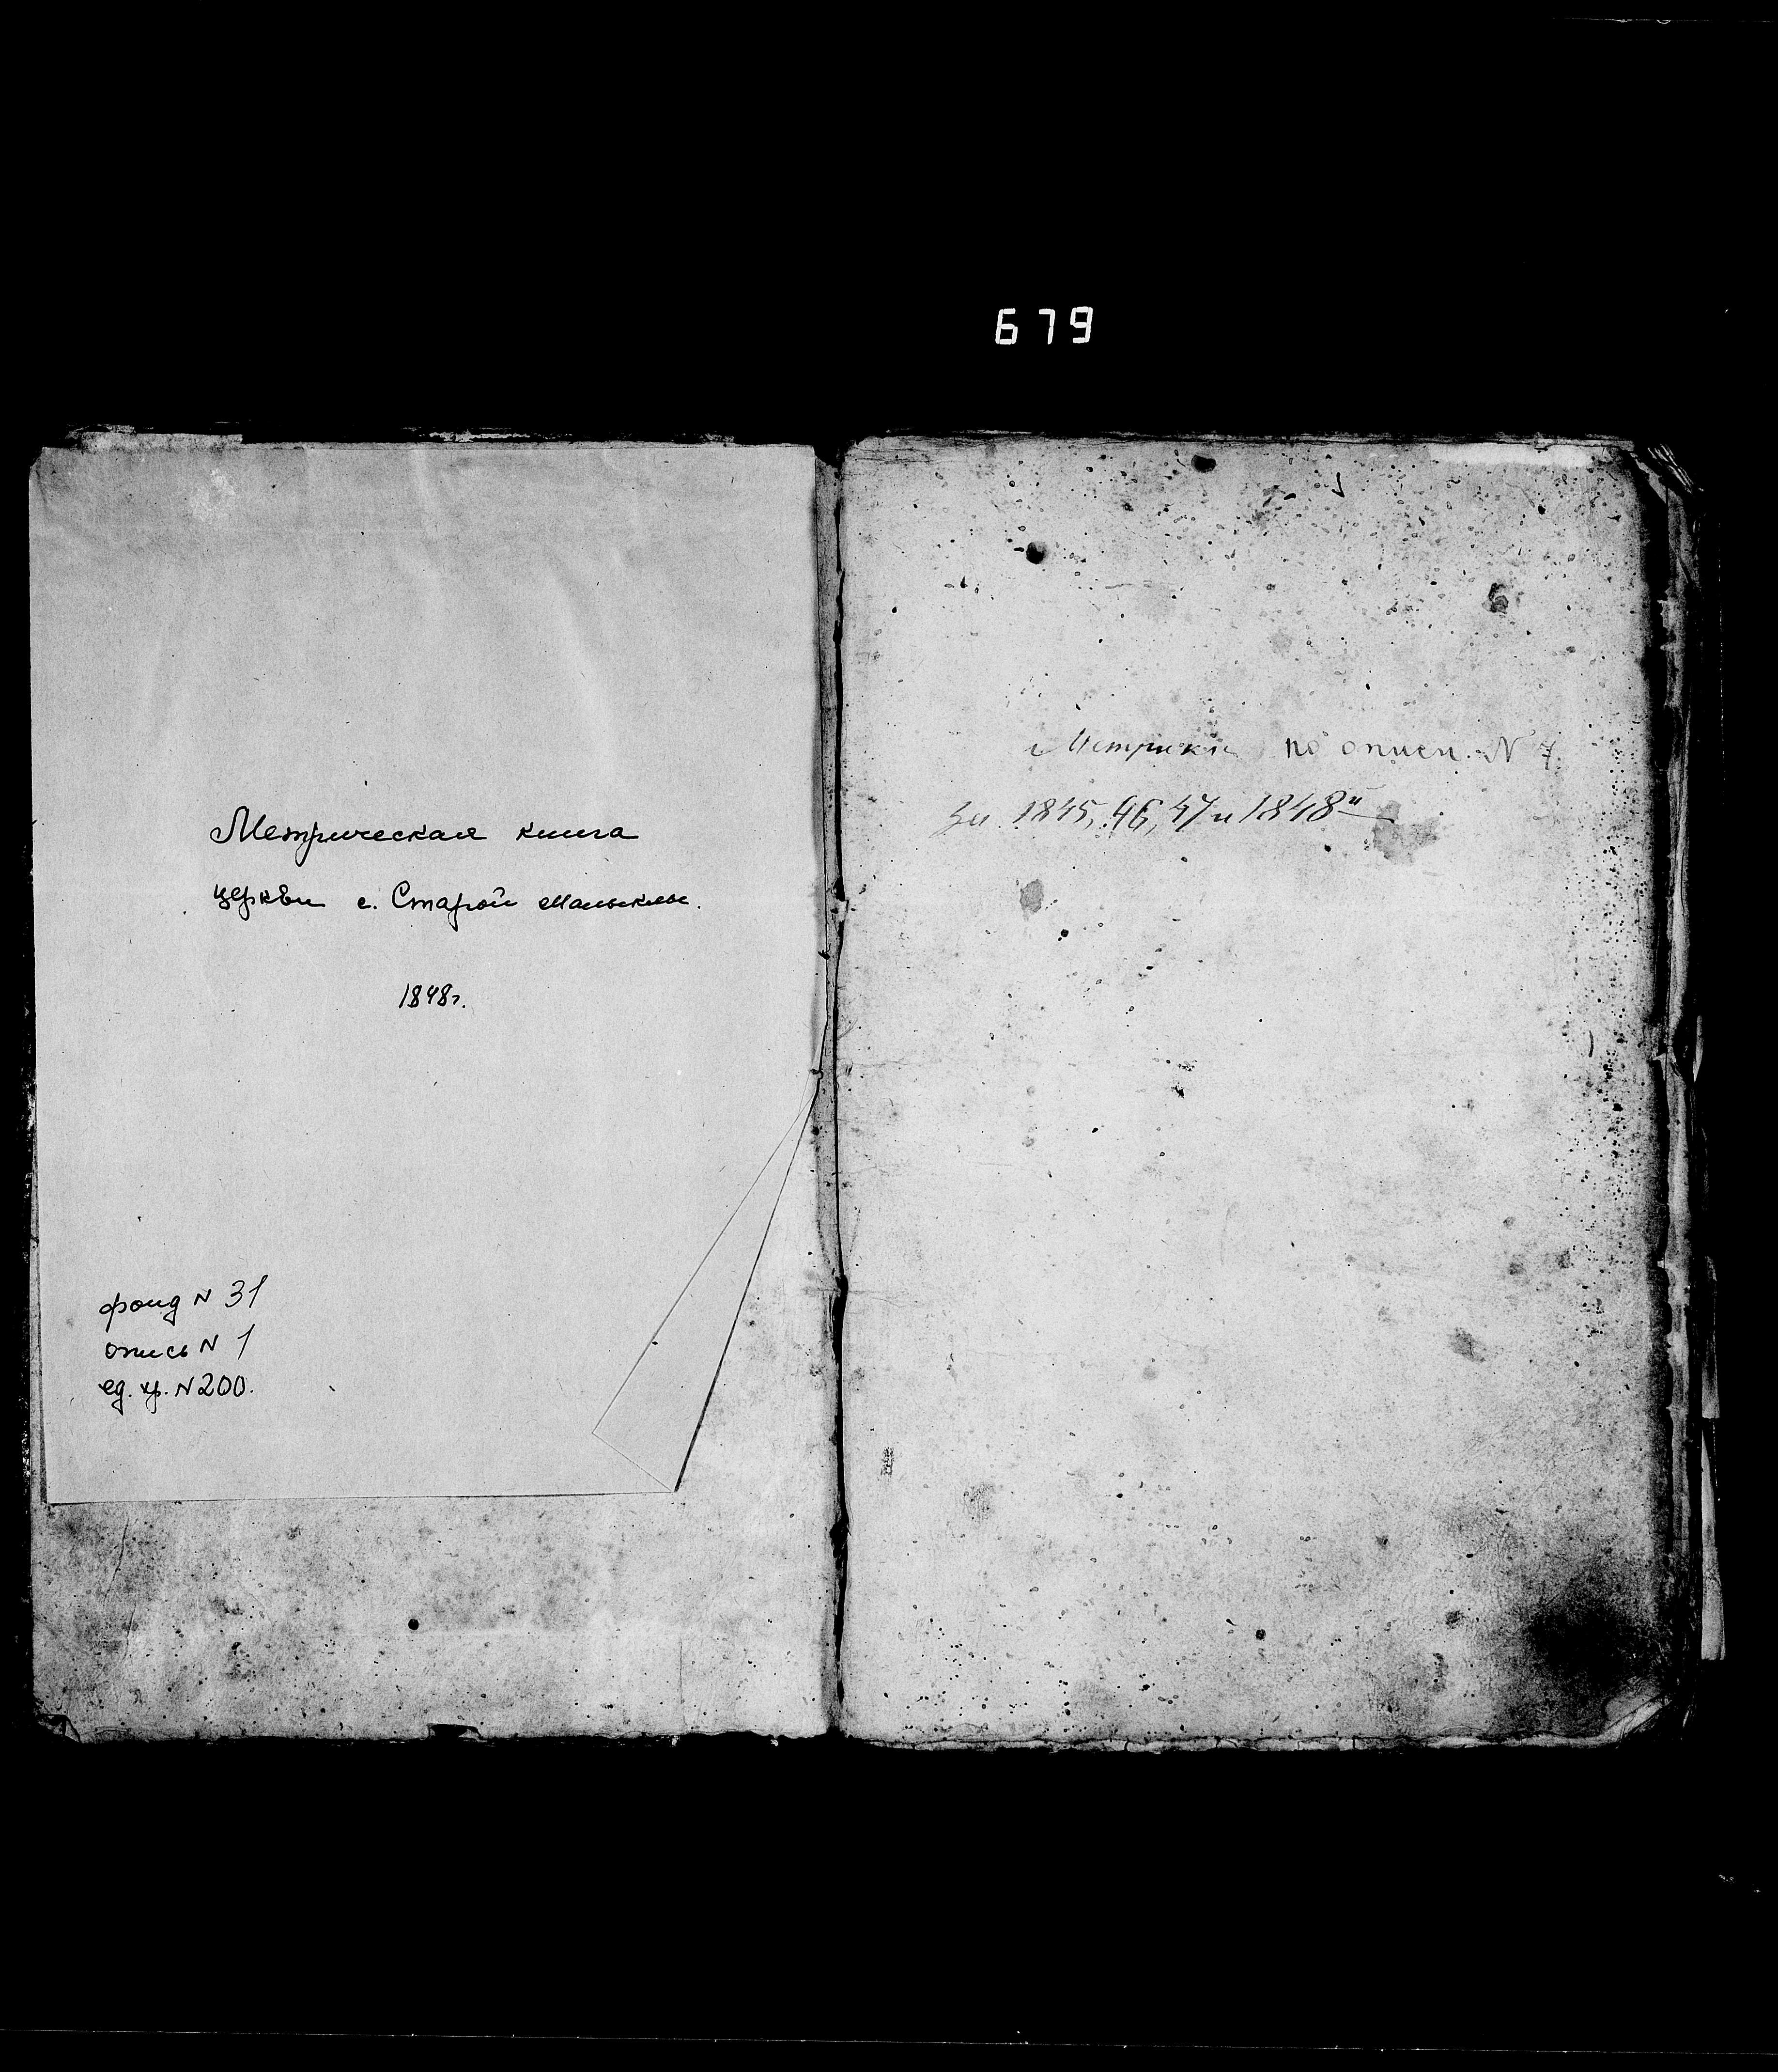 679
Метрическая книга
церкви с. Старой Малыклы.
1848г.
фонд N 31
опись N 1
ед. хр. N 200.
Метрики по описи N 7.
за 1845, 46, 47 и 1848й